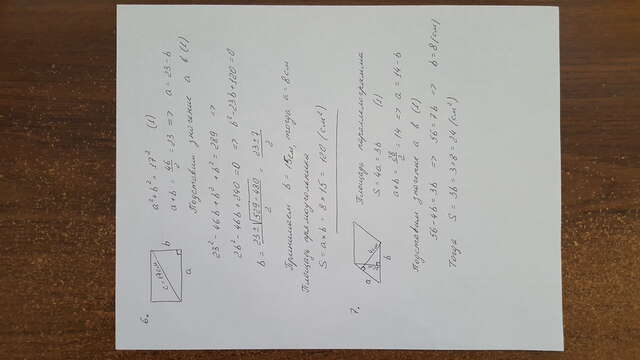 6.
c=17см
b
a
a² + b² = 17² (1)
a+b = 46/2 = 23 => a = 23-b
Подставим значение a в (1)
23² - 46b + b² + b² = 289 =>
2b² - 46b + 240 = 0 => b² - 23b + 120 = 0
b = (23 ± √(529 - 480))/2 = (23 ± 7)/2
Принимаем b = 15см, тогда a = 8см
Площадь прямоугольника
S = a × b = 8 × 15 = 120 (см²)
7.
a
b
Площадь параллелограмма
S = 4a = 3b (1)
a+b = 28/2 = 14 => a = 14-b
Подставим значение a в (1)
56 - 4b = 3b => 56 = 7b => b = 8 (см)
Тогда S = 3b = 3×8 = 24 (см²)